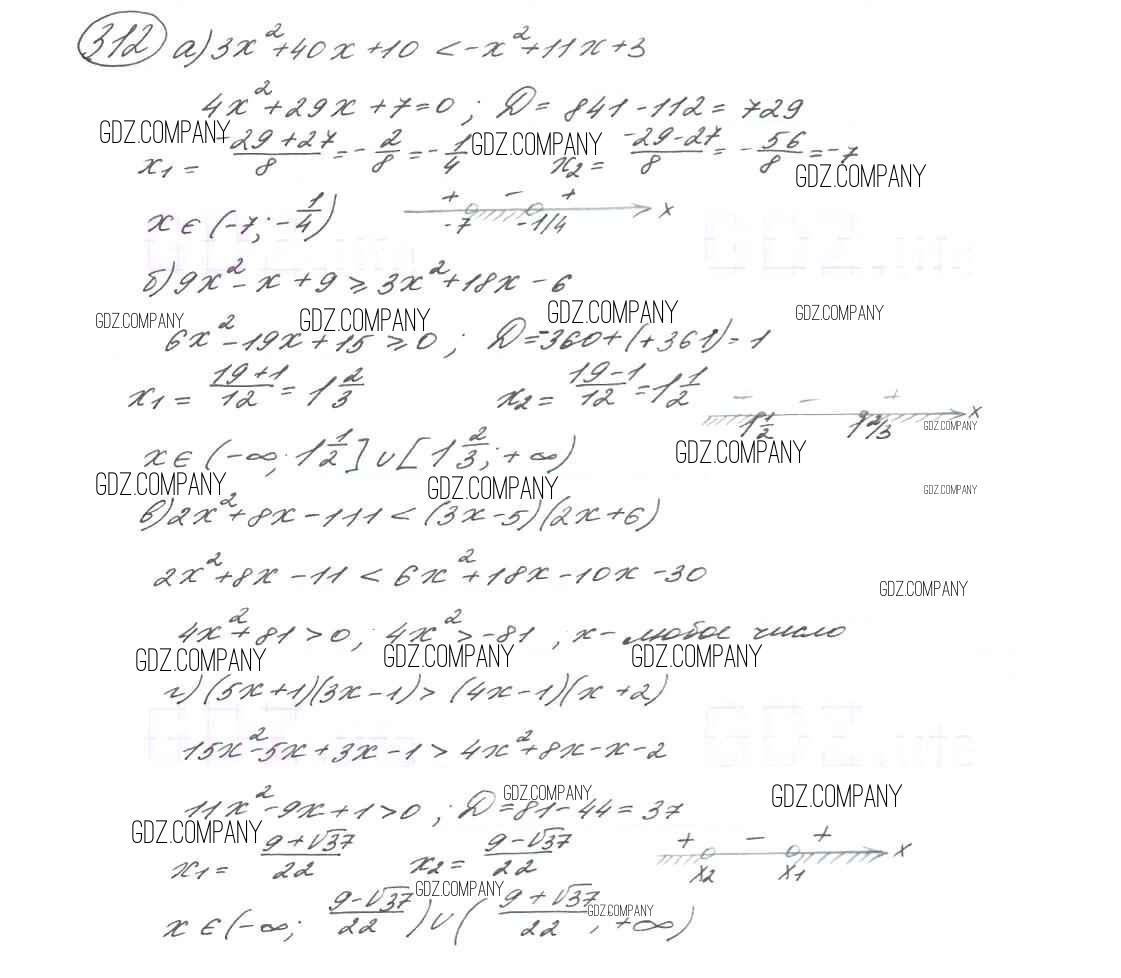 312 а) 3x²+40x+10 < -x²+11x+3
4x²+29x+7=0 ; D = 841-112 = 729
GDZ.COMPANY
x₁ = (-29+27)/8 = -2/8 = -1/4 GDZ.COMPANY x₂ = (-29-27)/8 = -56/8 = -7
GDZ.COMPANY
x ∈ (-7; -1/4) + - + -7 -1/4 x
б) 9x²-x+9 ≥ 3x²+18x-6
GDZ.COMPANY GDZ.COMPANY GDZ.COMPANY GDZ.COMPANY
6x²-19x+15 ≥ 0 ; D = -360+(+361) = 1
x₁ = (19+1)/12 = 1 2/3 x₂ = (19-1)/12 = 1 1/2 - - + x
1 1/2 2/3 GDZ.COMPANY
x ∈ (-∞; 1 1/2] ∪ [1 2/3; +∞) GDZ.COMPANY
GDZ.COMPANY GDZ.COMPANY GDZ.COMPANY
в) 2x²+8x-111 < (3x-5)(2x+6)
2x²+8x-11 < 6x²+18x-10x-30
GDZ.COMPANY
4x²+81>0 ; 4x²>-81 ; x - любое число
GDZ.COMPANY GDZ.COMPANY GDZ.COMPANY
г) (5x+1)(3x-1) > (4x-1)(x+2)
15x²-5x+3x-1 > 4x²+8x-x-2
GDZ.COMPANY GDZ.COMPANY
11x²-9x+1>0 ; D = 81-44 = 37
GDZ.COMPANY
x₁ = (9+√37)/22 x₂ = (9-√37)/22 + - + x₂ x₁ x
GDZ.COMPANY GDZ.COMPANY
x ∈ (-∞; (9-√37)/22) ∪ ((9+√37)/22; +∞)